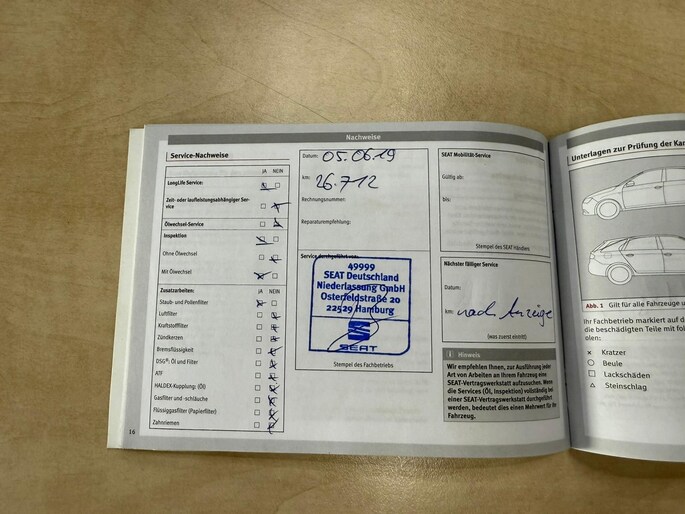 Nachweise
Service-Nachweise
JA NEIN
LongLife Service:
Zeit- oder laufleistungsabhängiger Ser-
vice
Ölwechsel-Service
Inspektion
Ohne Ölwechsel
Mit Ölwechsel
Zusatzarbeiten: JA NEIN
Staub- und Pollenfilter
Luftfilter
Kraftstofffilter
Zündkerzen
Bremsflüssigkeit
DSG®: Öl und Filter
ATF
HALDEX-Kupplung: (Öl)
Gasfilter und -schläuche
Flüssiggasfilter (Papierfilter)
Zahnriemen
16
Datum: 05.06.19
km: 26.712
Rechnungsnummer:
Reparaturempfehlung:
Service durchgeführt von:
49999
SEAT Deutschland
Niederlassung GmbH
Osterfeldstraße 20
22529 Hamburg
SEAT
Stempel des Fachbetriebs
SEAT Mobilität-Service
Gültig ab:
bis:
Stempel des SEAT Händlers
Nächster fälliger Service
Datum:
km: nach Anzeige
(was zuerst eintritt)
i Hinweis
Wir empfehlen Ihnen, zur Ausführung jeder
Art von Arbeiten an Ihrem Fahrzeug eine
SEAT-Vertragswerkstatt aufzusuchen. Wenn
die Services (Öl, Inspektion) vollständig bei
einer SEAT-Vertragswerkstatt durchgeführt
werden, bedeutet dies einen Mehrwert für Ihr
Fahrzeug.
Unterlagen zur Prüfung der
Abb. 1 Gilt für alle Fahrzeuge
Ihr Fachbetrieb markiert auf
die beschädigten Teile mit
len:
× Kratzer
○ Beule
□ Lackschäden
△ Steinschlag